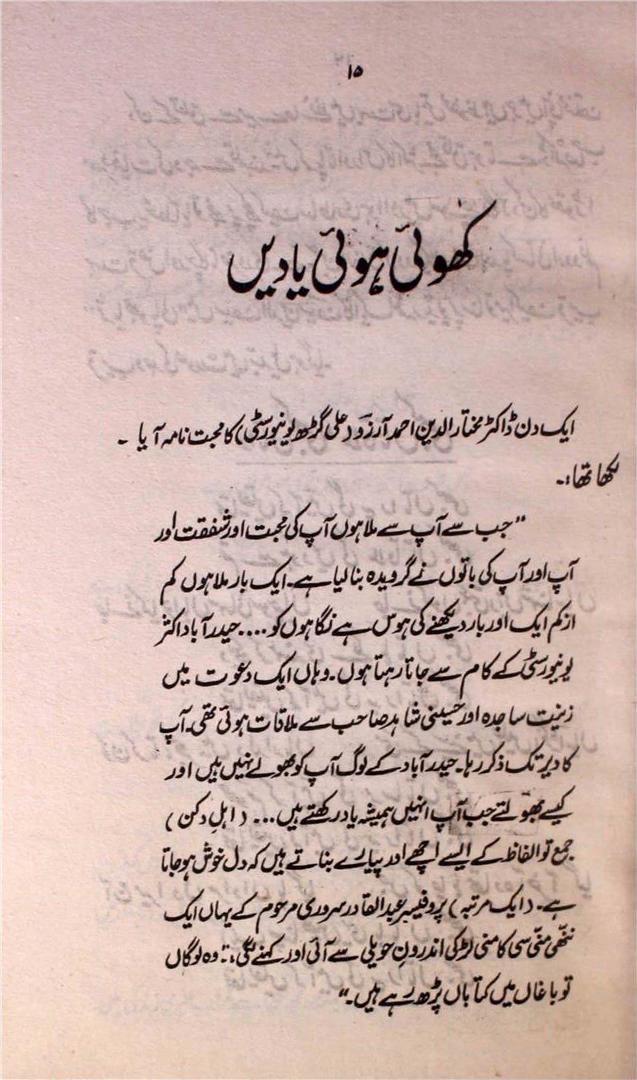 ۱۵
کھوئی ہوئی یادیں
ایک دن ڈاکٹر مختار الدین احمد آرزو (علی گڑھ یونیورسٹی) کا محبت نامہ آیا ۔
لکھا تھا:۔
"جب سے آپ سے ملا ہوں آپ کی محبت اور شفقت اور
آپ اور آپ کی باتوں نے گرویدہ بنا لیا ہے۔ ایک بار ملا ہوں کم
از کم ایک اور بار دیکھنے کی ہوس ہے نگاہوں کو .... حیدرآباد اکثر
یونیورسٹی کے کام سے جاتا رہتا ہوں۔ وہاں ایک دعوت میں
زینت ساجدہ اور حسینی شاہد صاحب سے ملاقات ہوئی تھی۔ آپ
کا دیر تک ذکر رہا۔ حیدرآباد کے لوگ آپ کو بھولے نہیں ہیں اور
کیسے بھولتے جب آپ انہیں ہمیشہ یاد رکھتے ہیں ... (اہلِ دکن)
جمع تو الفاظ کے ایسے اچھے اور پیارے بناتے ہیں کہ دل خوش ہو جاتا
ہے۔ (ایک مرتبہ) پروفیسر عبدالقادر سروری مرحوم کے یہاں ایک
ننھی منی سی کامنی لڑکی اندرونِ حویلی سے آئی اور کہنے لگی، "وہ لوگاں
تو باغاں میں کتاباں پڑھ رہے ہیں۔"